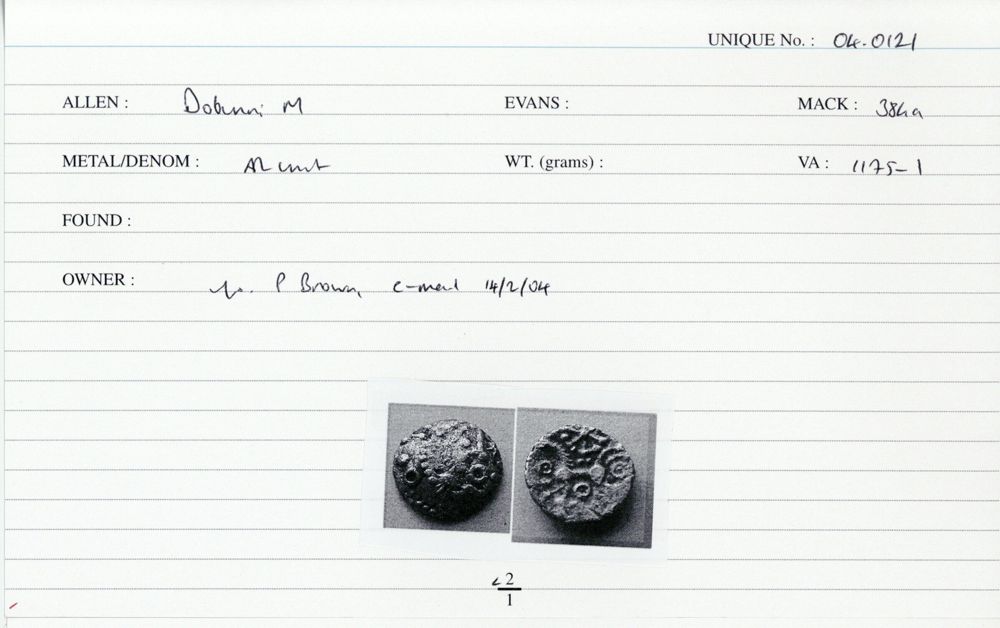 UNIQUE No. : 04.0121
ALLEN : Dobunni M EVANS : MACK : 384a
METAL/DENOM : AR unit WT. (grams) : VA : 1175-1
FOUND :
OWNER : P Brown, e-mail 14/2/04
2
1